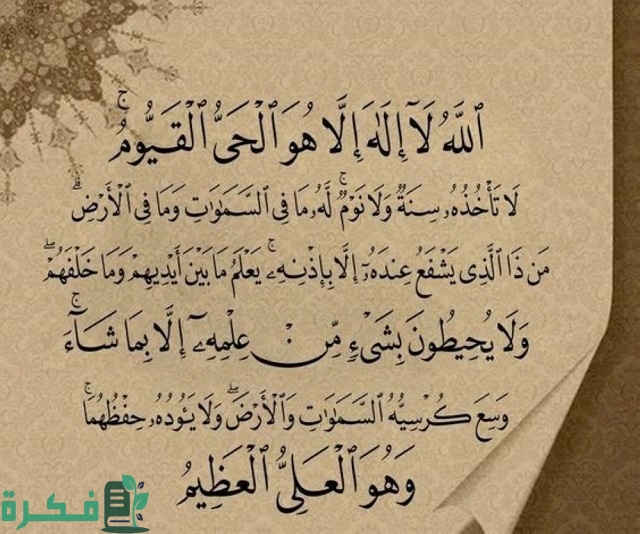 ٱللَّهُ لَآ إِلَٰهَ إِلَّا هُوَ ٱلْحَىُّ ٱلْقَيُّومُ ۚ
لَا تَأْخُذُهُۥ سِنَةٌ وَلَا نَوْمٌ ۚ لَّهُۥ مَا فِى ٱلسَّمَٰوَٰتِ وَمَا فِى ٱلْأَرْضِ ۗ
مَن ذَا ٱلَّذِى يَشْفَعُ عِندَهُۥٓ إِلَّا بِإِذْنِهِۦ ۚ يَعْلَمُ مَا بَيْنَ أَيْدِيهِمْ وَمَا خَلْفَهُمْ ۖ
وَلَا يُحِيطُونَ بِشَىْءٍ مِّنْ عِلْمِهِۦٓ إِلَّا بِمَا شَآءَ ۚ
وَسِعَ كُرْسِيُّهُ ٱلسَّمَٰوَٰتِ وَٱلْأَرْضَ ۖ وَلَا يَـُٔودُهُۥ حِفْظُهُمَا ۚ
وَهُوَ ٱلْعَلِىُّ ٱلْعَظِيمُ
فكرة